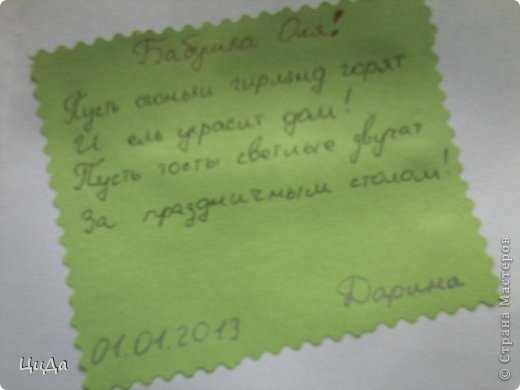 Бабушка Оля!
Пусть огоньки гирлянд горят
И ель украсит дом!
Пусть тосты светлые звучат
За праздничным столом!
Дарина
01.01.2013
ЦиДа
© Страна Мастеров